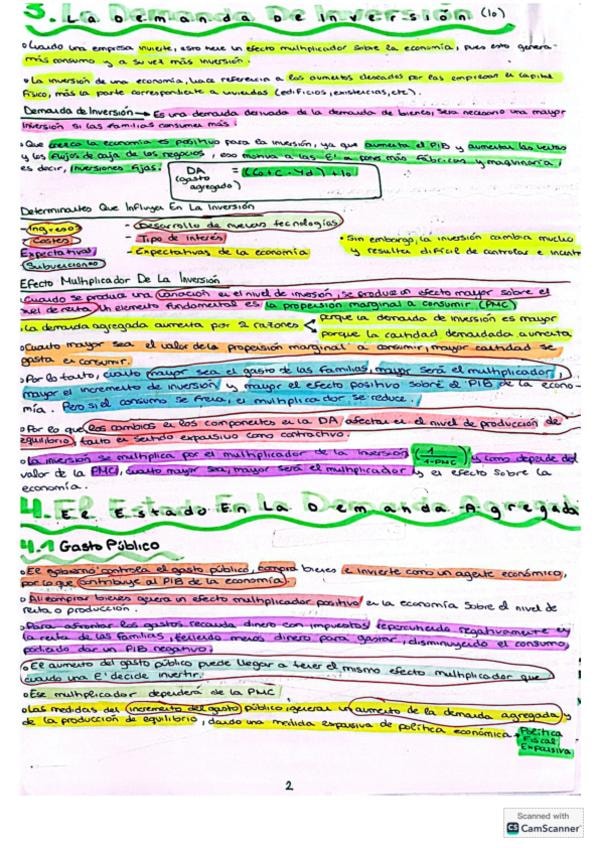 3. La Demanda De Inversión (Io)
• Cuando una empresa invierte, esto tiene un efecto multiplicador sobre la economía, pues esto genera
más consumo y a su vez más inversión.
• La inversión de una economía, hace referencia a los aumentos deseados por las empresas de capital
físico, más la parte correspondiente a viviendas (edificios, existencias, etc).
Demanda de Inversión → Es una demanda derivada de la demanda de bienes, será necesario una mayor
inversión si las familias consumen más.
• Que crezca la economía es positivo para la inversión, ya que aumenta el PIB y aumentan las ventas
y los flujos de caja de los negocios, eso motiva a las E' a poner más fábricas y maquinaria,
es decir, inversiones fijas.
DA = (Co + C · Yd) + Io
(gasto
agregado)
Determinantes Que Influyen En La Inversión
- Ingresos
- Costes
Expectativas
- Subvenciones
- Desarrollo de nuevas tecnologías
- Tipo de interés
- Expectativas de la economía
• Sin embargo, la inversión cambia mucho
y resulta difícil de controlar e incent
Efecto Multiplicador De La Inversión
• Cuando se produce una variación en el nivel de inversión, se produce un efecto mayor sobre el
nivel de renta. Un elemento fundamental es la propensión marginal a consumir (PMC)
• La demanda agregada aumenta por 2 razones < porque la demanda de inversión es mayor
porque la cantidad demandada aumenta
• Cuanto mayor sea el valor de la propensión marginal a consumir, mayor cantidad se
gasta en consumir.
• Por lo tanto, cuanto mayor sea el gasto de las familias, mayor será el multiplicador,
mayor el incremento de inversión y mayor el efecto positivo sobre el PIB de la econo-
mía. Pero si el consumo se frena, el multiplicador se reduce.
• Por lo que los cambios en los componentes en la DA afectan en el nivel de producción de
equilibrio, tanto en sentido expansivo como contractivo.
• La inversión se multiplica por el multiplicador de la inversión (1/1-PMC) y como depende del
valor de la PMC, cuanto mayor sea, mayor será el multiplicador y el efecto sobre la
economía.
4. El Estado En La Demanda Agregada
4.1 Gasto Público
• El gobierno controla el gasto público, compra bienes e invierte como un agente económico,
por lo que contribuye al PIB de la economía.
• Al comprar bienes genera un efecto multiplicador positivo en la economía sobre el nivel de
renta o producción.
• Para afrontar los gastos recauda dinero con impuestos repercutiendo negativamente en
la renta de las familias, teniendo menos dinero para gastar, disminuyendo el consumo,
pudiendo dar un PIB negativo.
• El aumento del gasto público puede llegar a tener el mismo efecto multiplicador que
cuando una E' decide invertir.
• Ese multiplicador dependerá de la PMC
• Las medidas del incremento del gasto público generan un aumento de la demanda agregada y
de la producción de equilibrio, dando una medida expansiva de política económica → Política
Fiscal
Expansiva
2
Scanned with
CS CamScanner